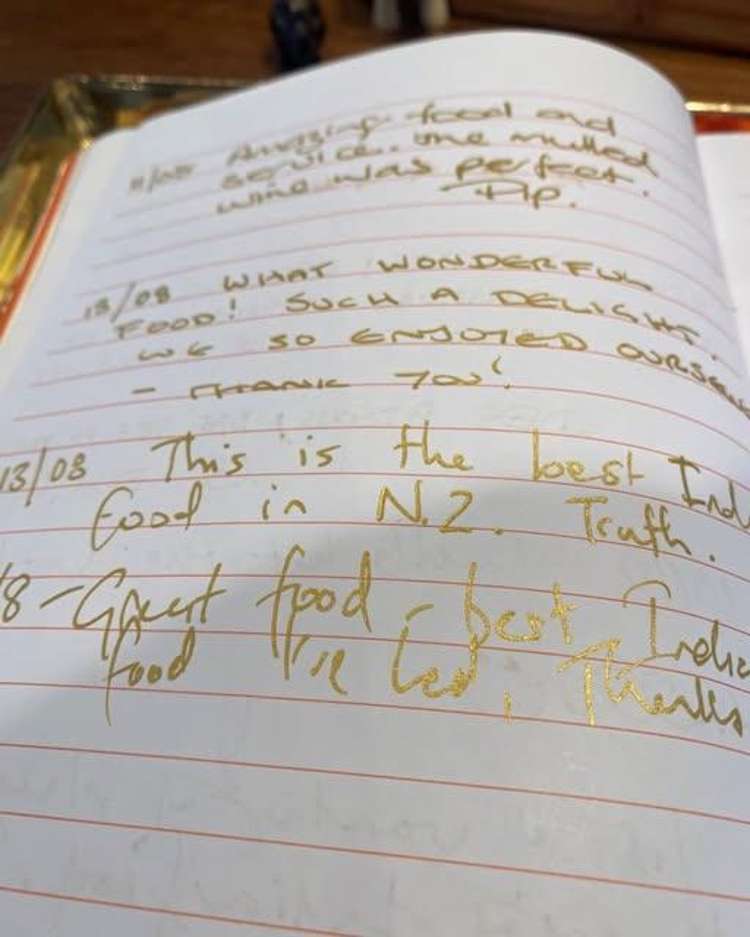 11/08 Amazing food and
service. The mulled
wine was perfect.
13/08 WHAT WONDERFUL
FOOD! SUCH A DELIGHT.
WE SO ENJOYED
- THANK YOU!
13/08 This is the best
food in N.Z. Truth.
Great food - best
food I've had, Thanks